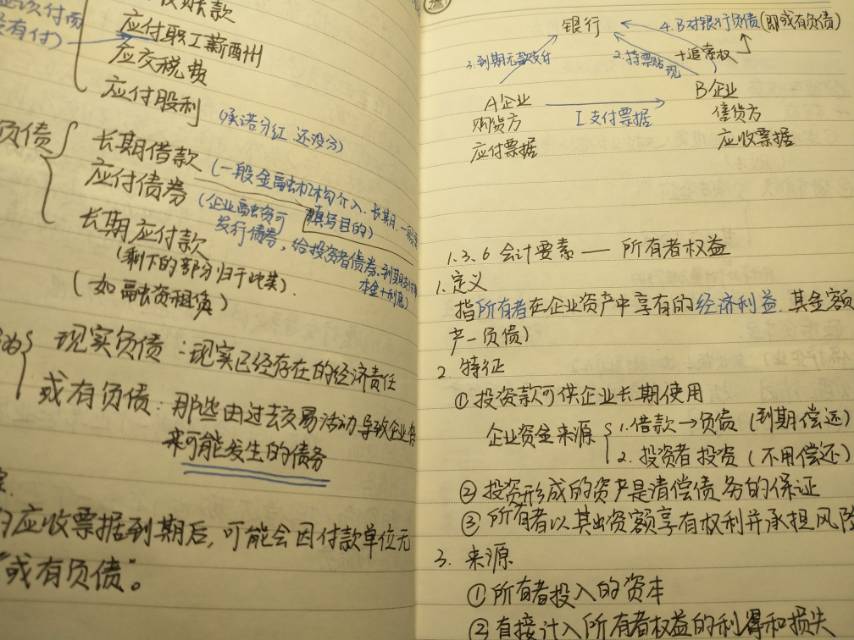 应付职工薪酬
有付)
应交税费
应付股利
(承诺分红 还没分)
负债
长期借款
(一般金融机构介入、长期、
应付债券
(企业融资可
填写目的)
发行债券, 给投资者债券、到期
本金+利息)
长期应付款
(剩下的部分归于此类).
(如融资租赁)
现实负债:现实已经存在的经济责任
或有负债:那些由过去交易活动导致企业
来可能发生的债务
应收票据到期后,可能会因付款单位无
"或有负债"。
银行
4.B对银行负债(即或有负债)
3.到期无款支付
2.持票贴现
+追索权
A企业
1支付票据
B企业
购货方
售货方
应付票据
应收票据
1.3.6 会计要素 — 所有者权益
1.定义
指所有者在企业资产中享有的经济利益.其金额
产-负债)
2 特征
①投资款可供企业长期使用
企业资金来源
1.借款→负债 (到期偿还)
2.投资者投资 (不用偿还)
②投资形成的资产是清偿债务的保证
③所有者以其出资额享有权利并承担风险
3.来源
①所有者投入的资本
②直接计入所有者权益的利得和损失